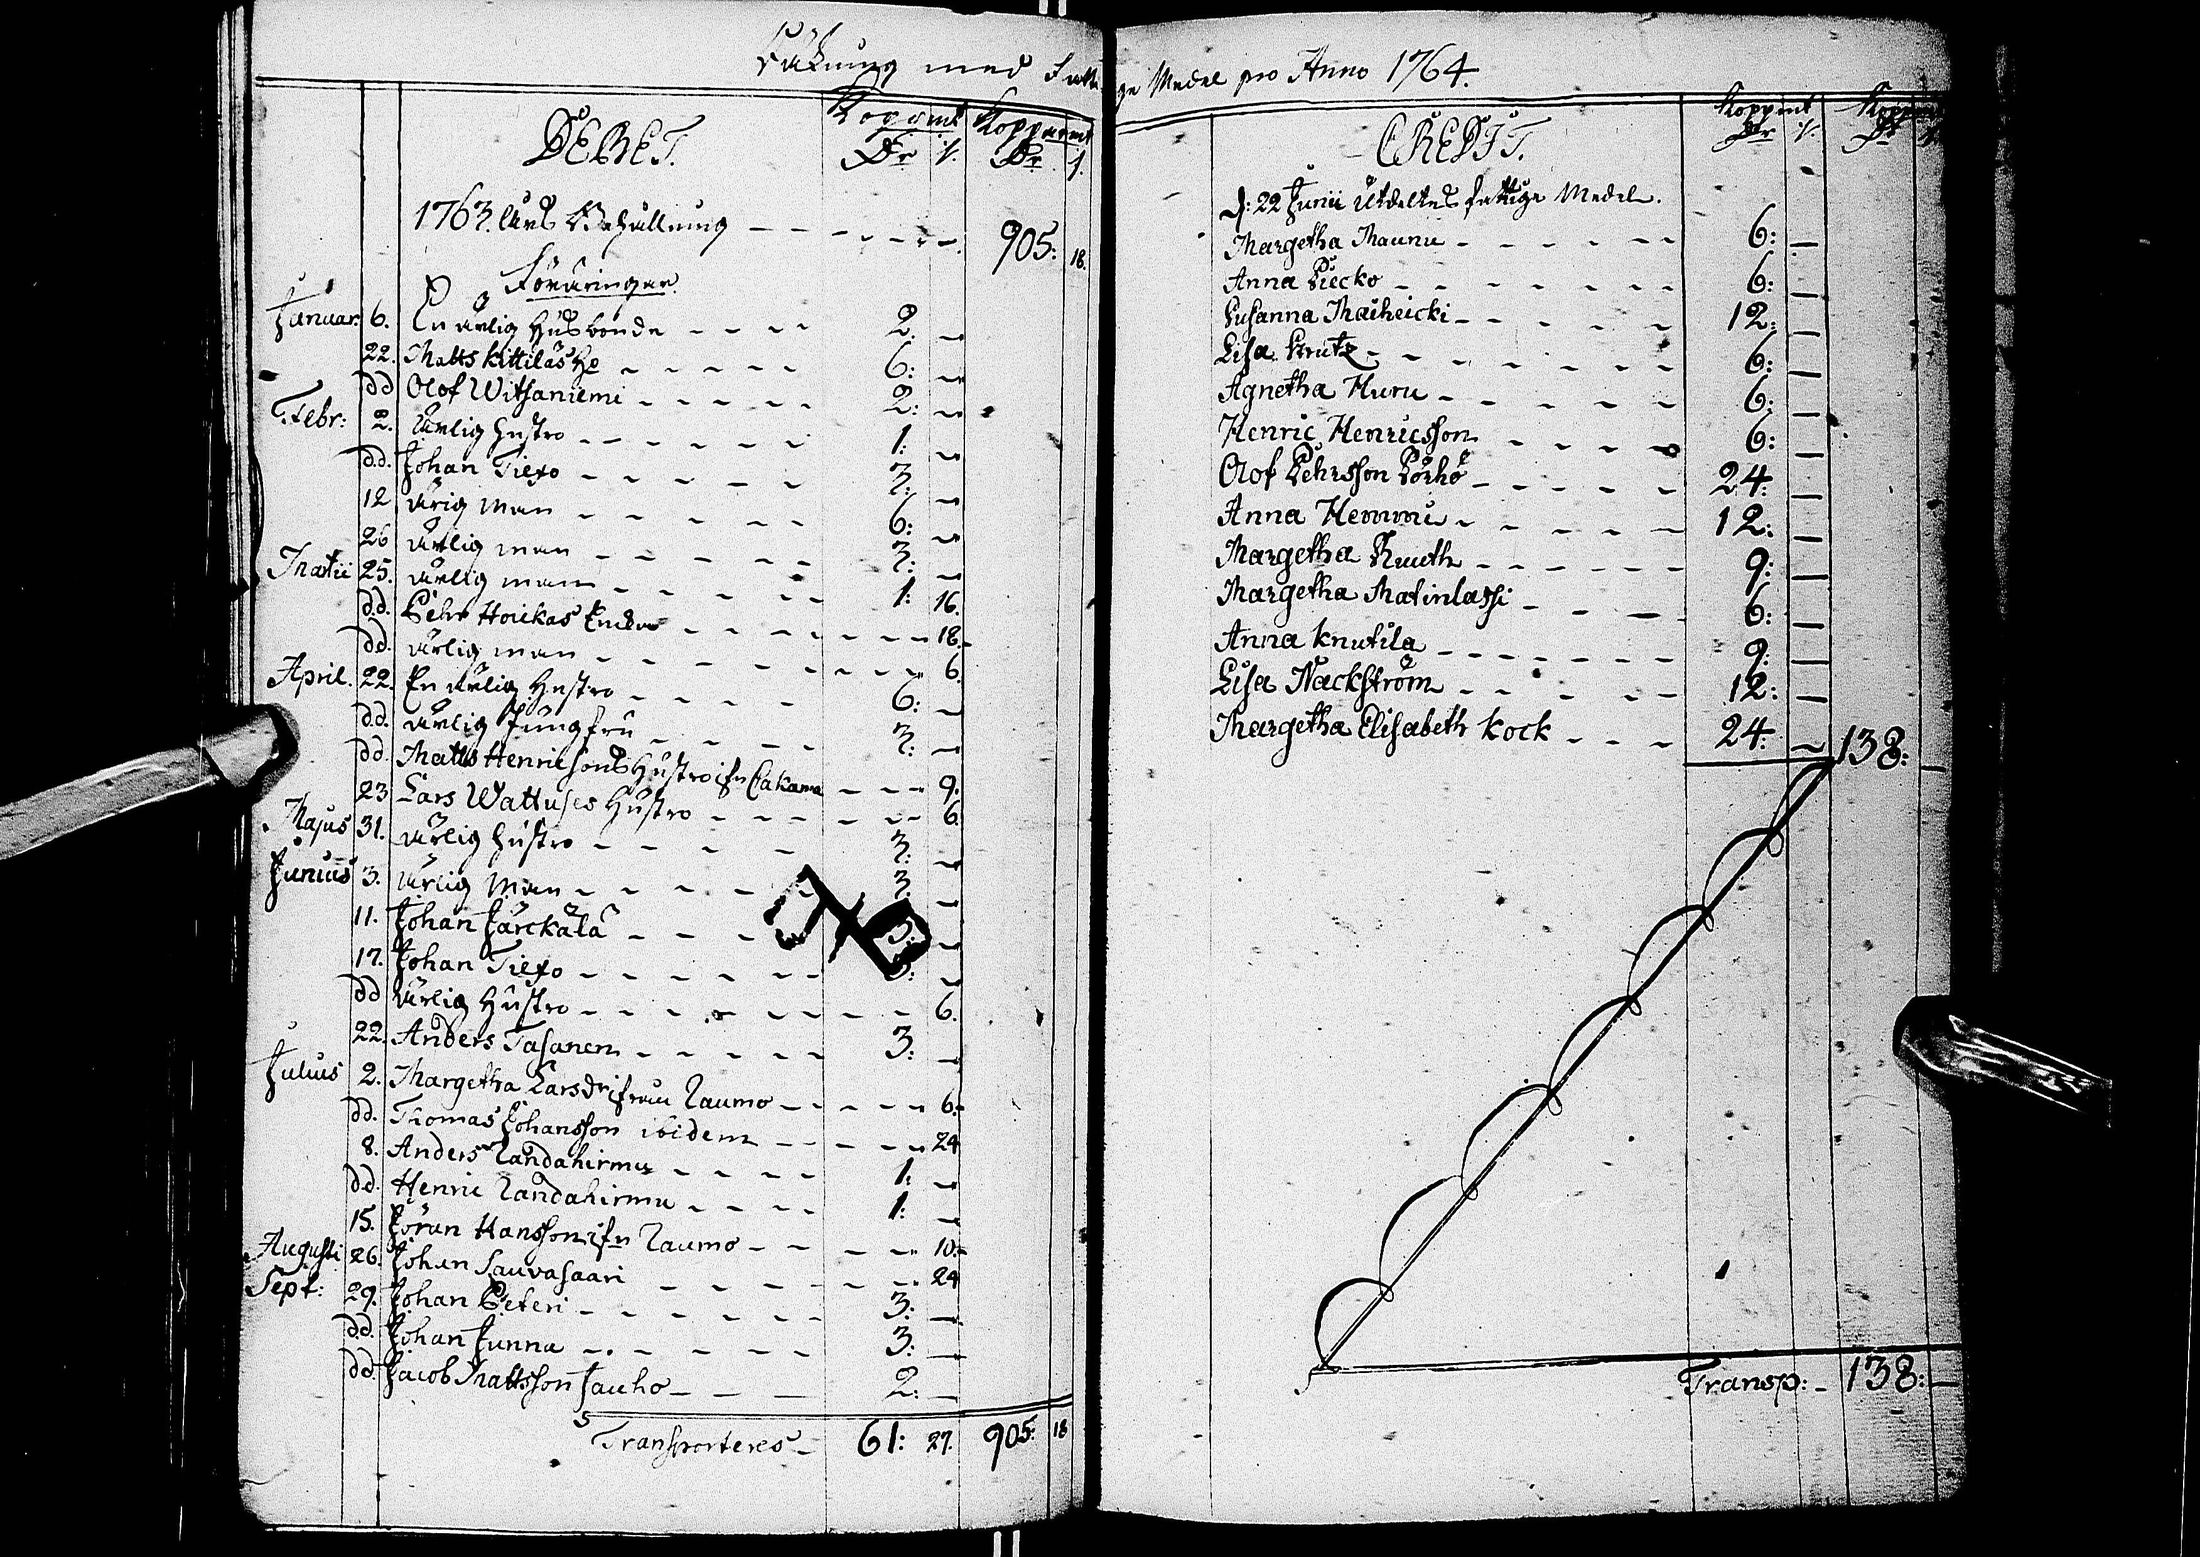 Räkning med Fatti
ge Medel pro Anno 1764.
DEBET.
Koppmt Kopparmt
Dr /. Dr /.
1763 års Behållning 905: 18.
Föräringar
Januar. 6. En ärlig Husbonde 2. —
22. Matts Kittiläs 6: —
dd Olof Witsaniemi 2: —
Febr: 2. ärlig Hustro 1: —
dd. Johan Tiexo 3: —
12 ärlig man 6: —
26 ärlig man 3: —
Martii 25. ärlig man 1: 16.
dd. Pehr Houkas 18.
dd. ärlig man 6.
April. 22. En ärlig Hustro 6: —
dd. ärlig Jungfru 3: —
dd. Matts Henricsons Hustro ifn 9.
23 Lars Wattuses Hustro 6.
Majus 31. ärlig Hustro 3: —
Junius 3. ärlig Man 3. —
11. Johan Järckälä 3: —
17. Johan Tiexo 3: —
dd ärlig Hustro 6.
22. Anders Tasanen 3: —
Julius 2. Margetha Larsdr ifrån Raumo 6.
dd. Thomas Johansson ibidem 24
8. Anders Randahirmu 1: —
dd. Henric Randahirmu 1: —
15. Jöran Hansson ifn Raumo 10.
Augusti 26. Johan Sauvasaari 24
Sept: 29. Johan Peteri 3: —
dd. Johan Junna 3: —
dd. Jacob Mattsson Jauho 2: —
Transporteres 61: 27. 905: 18
CREDIT.
Koppmt
Dr /. Dr
d: 22 Junii Utdeltes fattige Medel.
Margetha Maunu 6: —
Anna Piecko 6: —
Susanna Maiheicki 12: —
Lisa Krutz 6: —
Agnetha Huru 6: —
Henric Henricsson 6: —
Olof Pehrsson Pörhö 24: —
Anna Hemmi 12: —
Margetha Knuth 9: —
Margetha Matinlassi 6: —
Anna Knutila 9: —
Lisa Nackström 12: —
Margetha Elisabeth Kock 24: — 138: —
Transp: 138: —